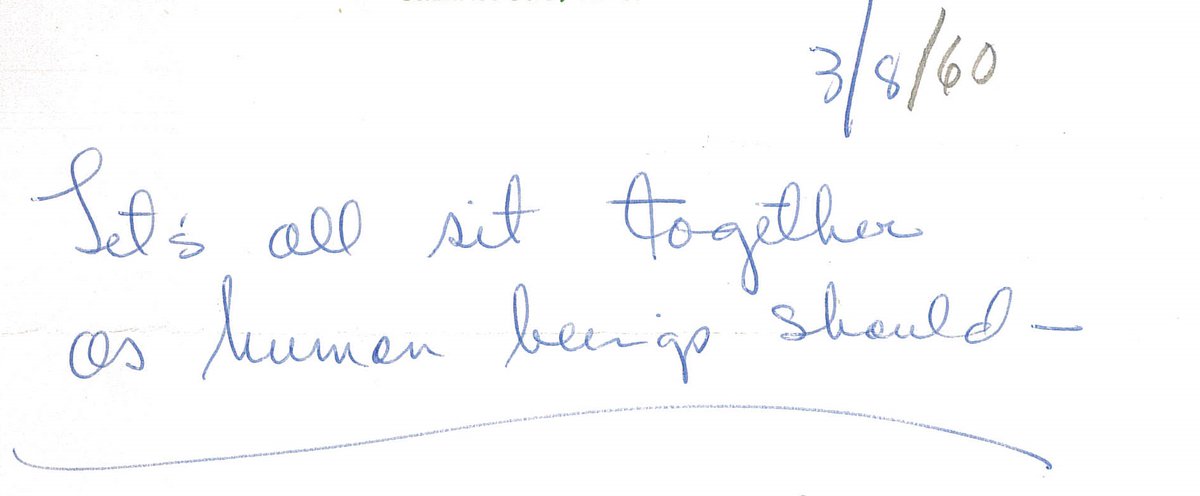 3/8/60
Let's all sit together
as human beings should —